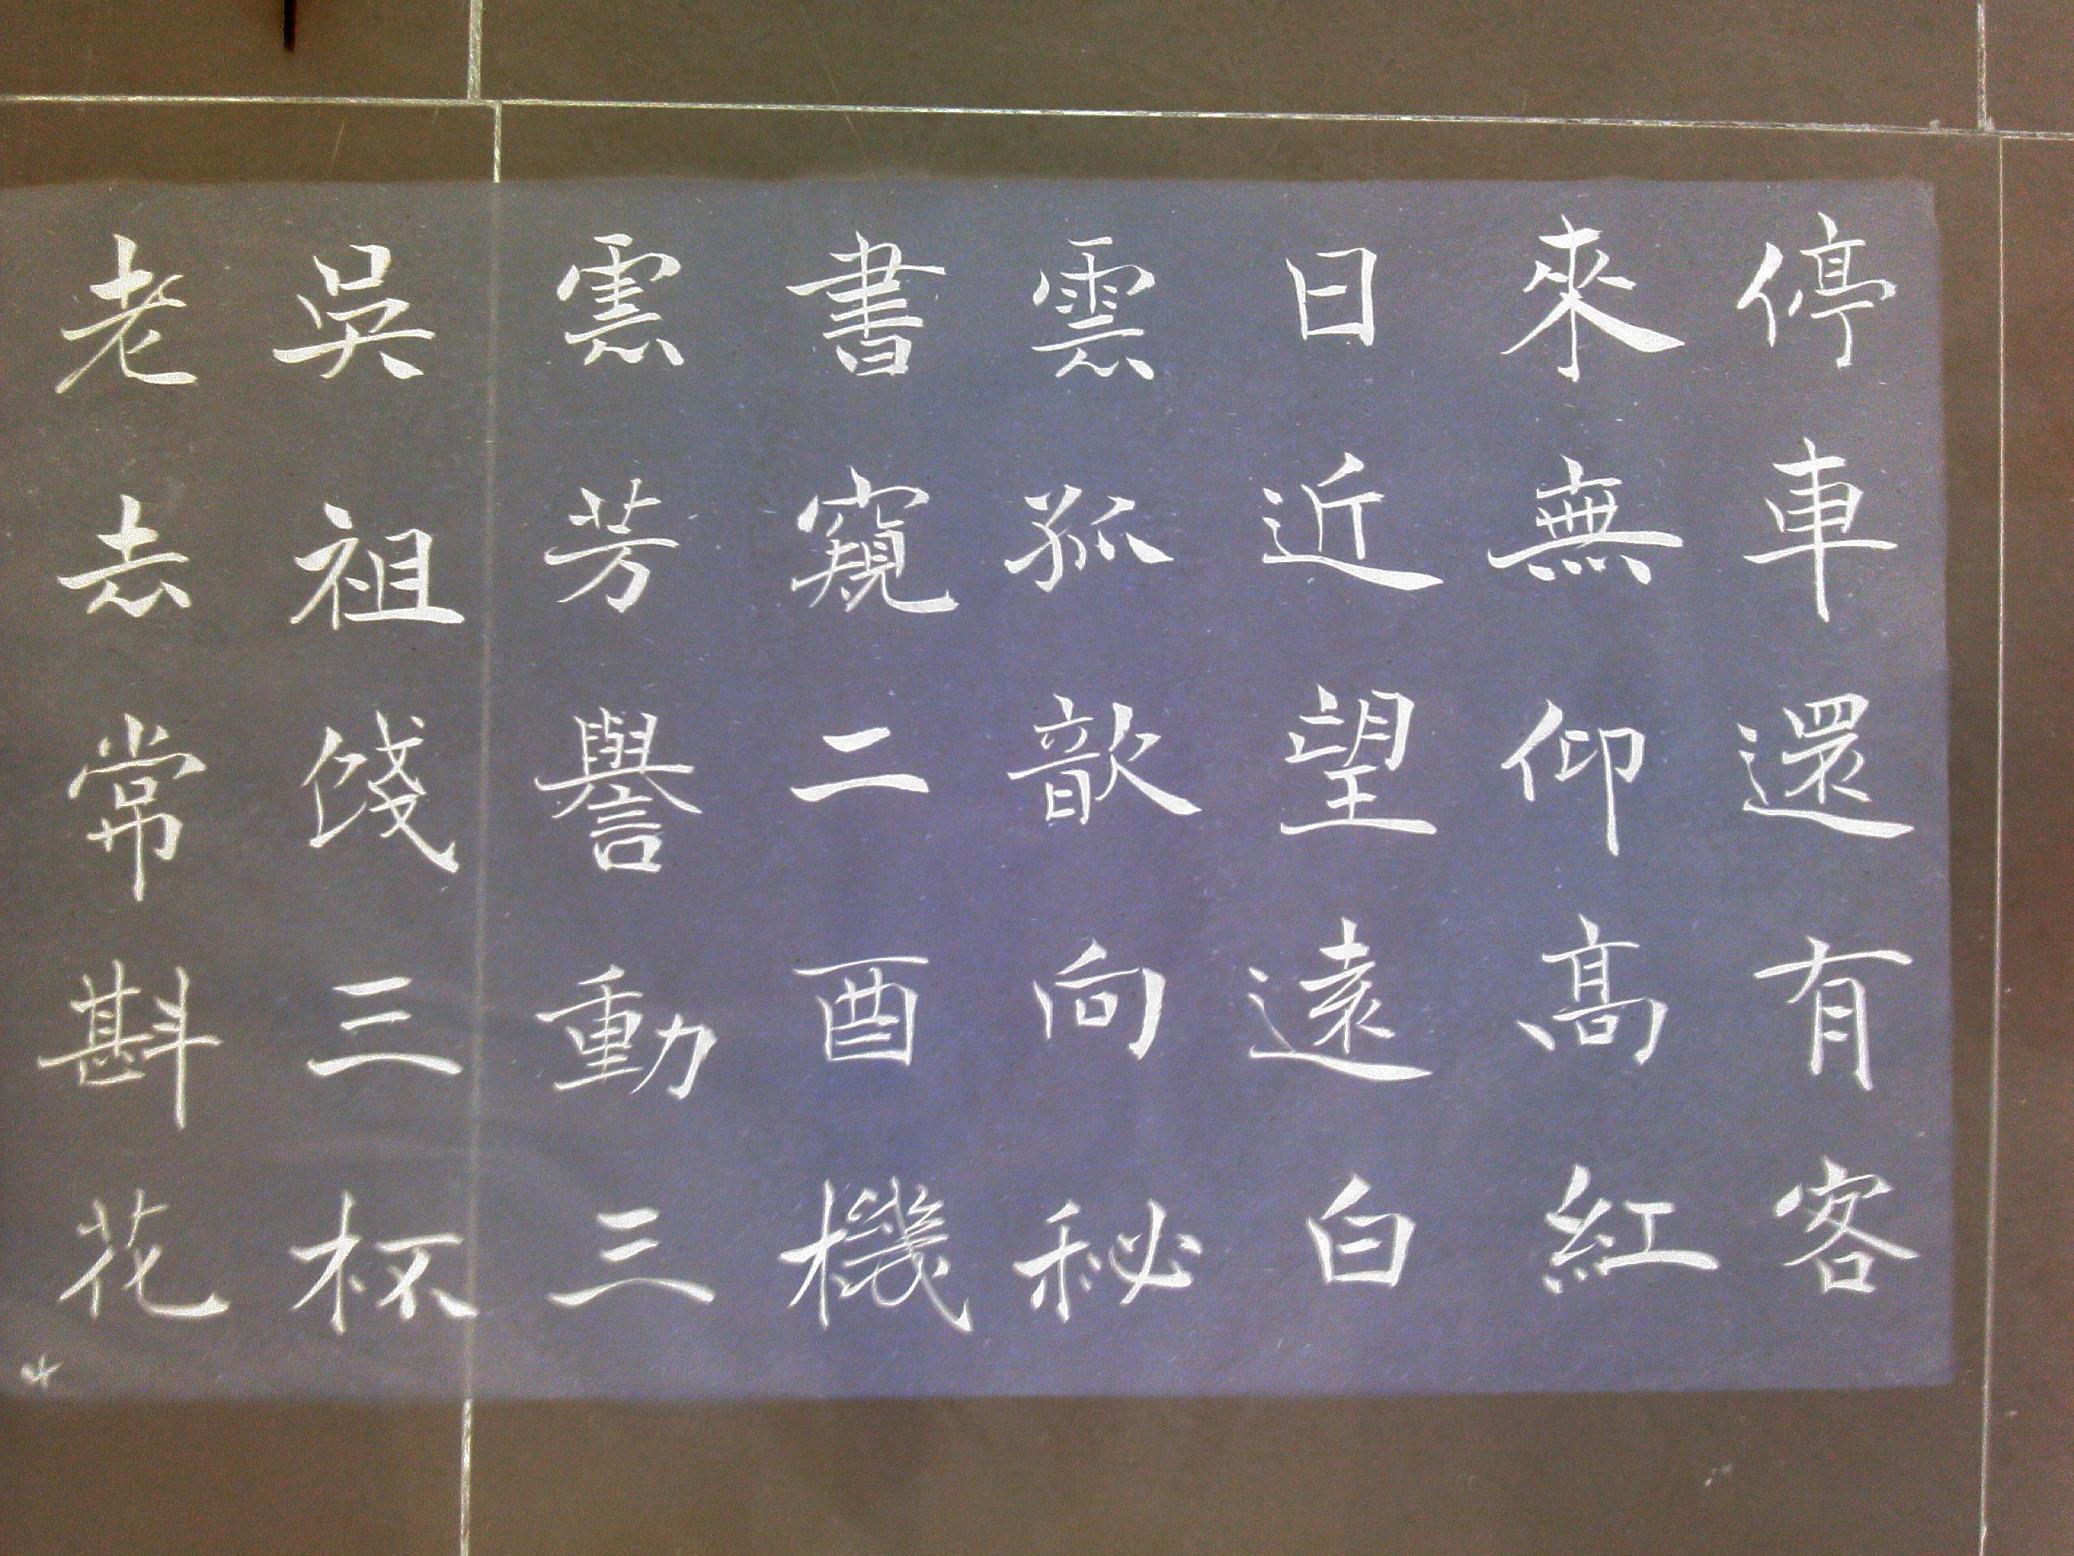 停車還有客
來無仰高紅
日近望遠白
雲孤歆向秘
書窺二酉機
雲芳譽動三
吳祖餞三杯
老志常斟花